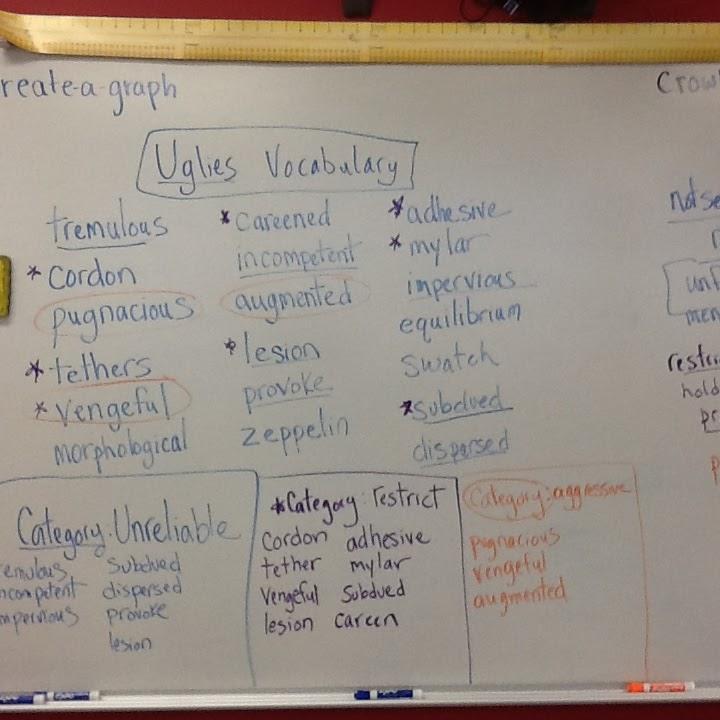 reate-a-graph
Crow
Uglies Vocabulary
tremulous
* cordon
pugnacious
* tethers
* vengeful
morphological
* careened
incompetent
augmented
* lesion
provoke
zeppelin
* adhesive
* mylar
impervious
equilibrium
swatch
* subdued
dispersed
notse
unf
men
restri
hold
pr
Category: Unreliable
emulous subdued
ncompetent dispersed
mpervious provoke
lesion
* Category: restrict
Cordon adhesive
tether mylar
Vengeful Subdued
lesion Careen
Category: aggressive
pugnacious
vengeful
augmented